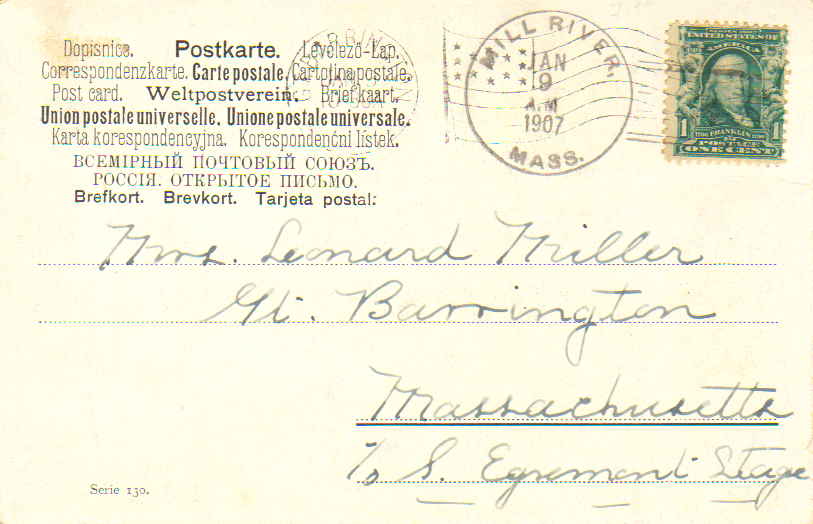 Dopisnice. Postkarte. Levelező-Lap.
Correspondenzkarte. Carte postale. Cartolina postale.
Post card. Weltpostverein. Briefkaart.
Union postale universelle. Unione postale universale.
Karta korespondencyjna. Korespondenční lístek.
ВСЕМІРНЫЙ ПОЧТОВЫЙ СОЮЗЪ.
РОССІЯ. ОТКРЫТОЕ ПИСЬМО.
Brefkort. Brevkort. Tarjeta postal.
MILL RIVER,
JAN
9
A.M
1907
MASS.
UNITED STATES OF
AMERICA
1 FRANKLIN 1
POSTAGE
ONE CENT
Mrs. Leonard Miller
Gt. Barrington
Massachusetts
c/o S. Egremont Stage
Serie 130.